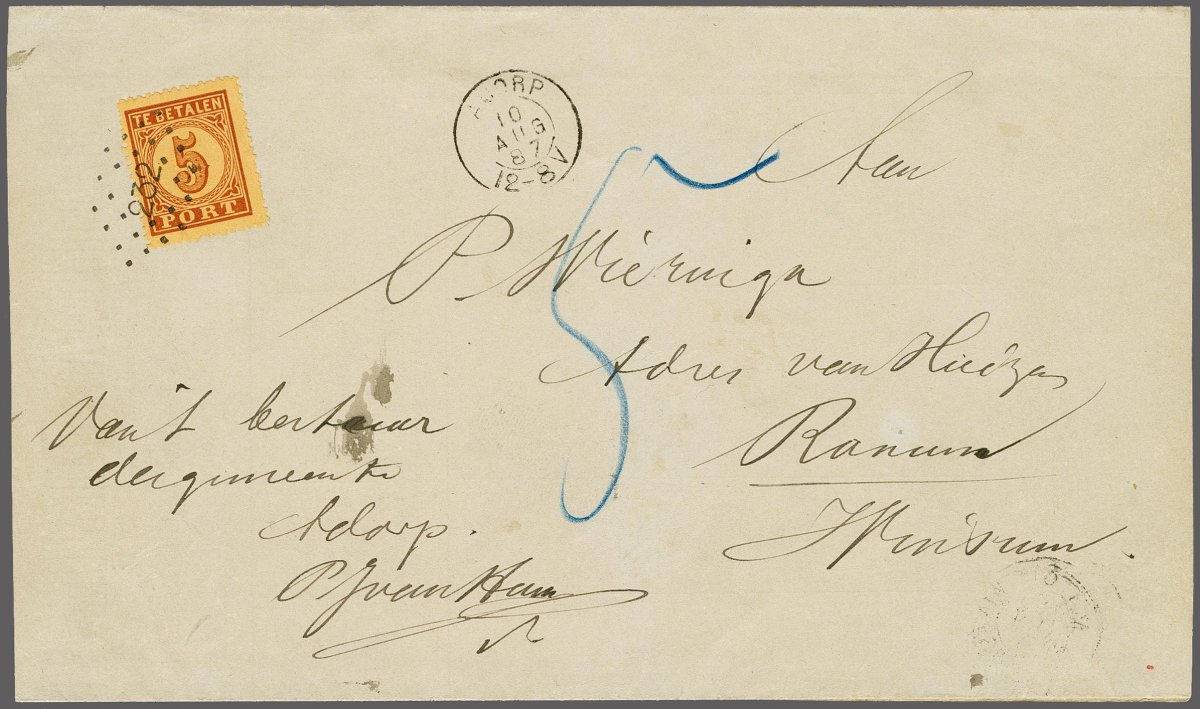 TE BETALEN
5
PORT
232
ADORP
10
AUG
87
12-8V
5
Aan
P. Wieringa
Adres van Huizen
Ranum
Winsum.
Van't bestuur
der gemeente
Adorp.
P J van Ham